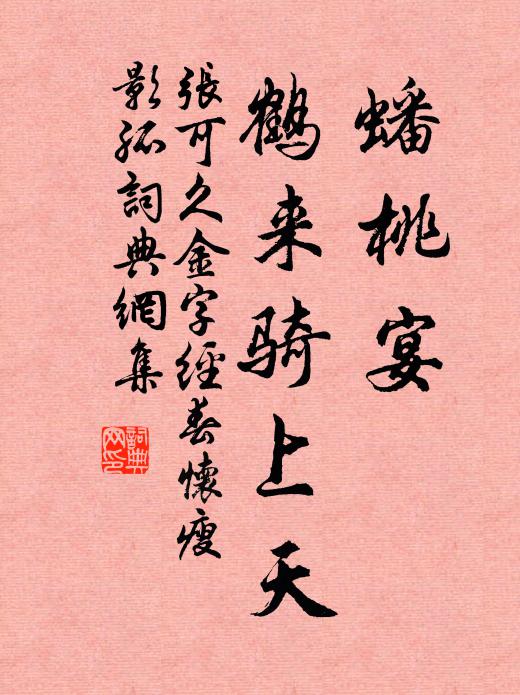 蟠桃宴
鹤来骑上天
張可久金字經春懷瘦
影孤詞典網集
詞典
网印